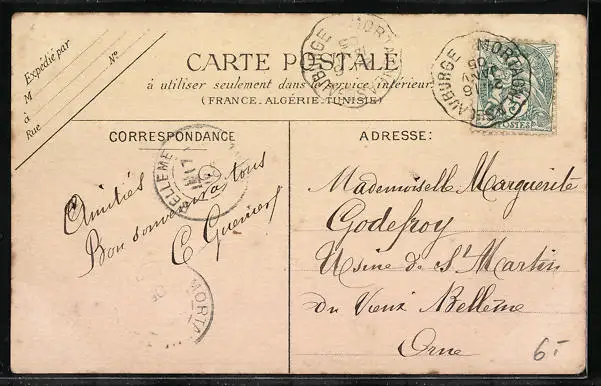 Expédié par
M
à
Rue
N°
CARTE POSTALE
à utiliser seulement dans le service intérieur.
(FRANCE-ALGÉRIE-TUNISIE)
MORTA
MORTAGNE
POSTES
CORRESPONDANCE
BELLEME
Amitiés
Bon souvenir à tous
MORTA
ADRESSE:
Mademoiselle Marguerite
Godefroy
Usine de St Martin
du Vieux Bellême
Orne
6.-